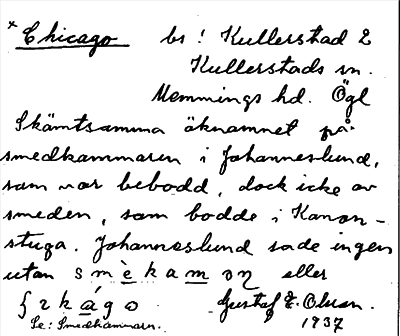 *Chicago bs! Kullerstad 2
Kullerstads sn.
Memmings hd. Ögl
Skämtsamma öknamnet på
smedkammaren i Johanneslund,
som var bebodd, dock icke av
smeden, som bodde i Kanon-
stuga. Johanneslund sade ingen
utan smèkamən eller
ʃikágo Gustaf E. Olsson.
Se: Smedkammarn. 1937